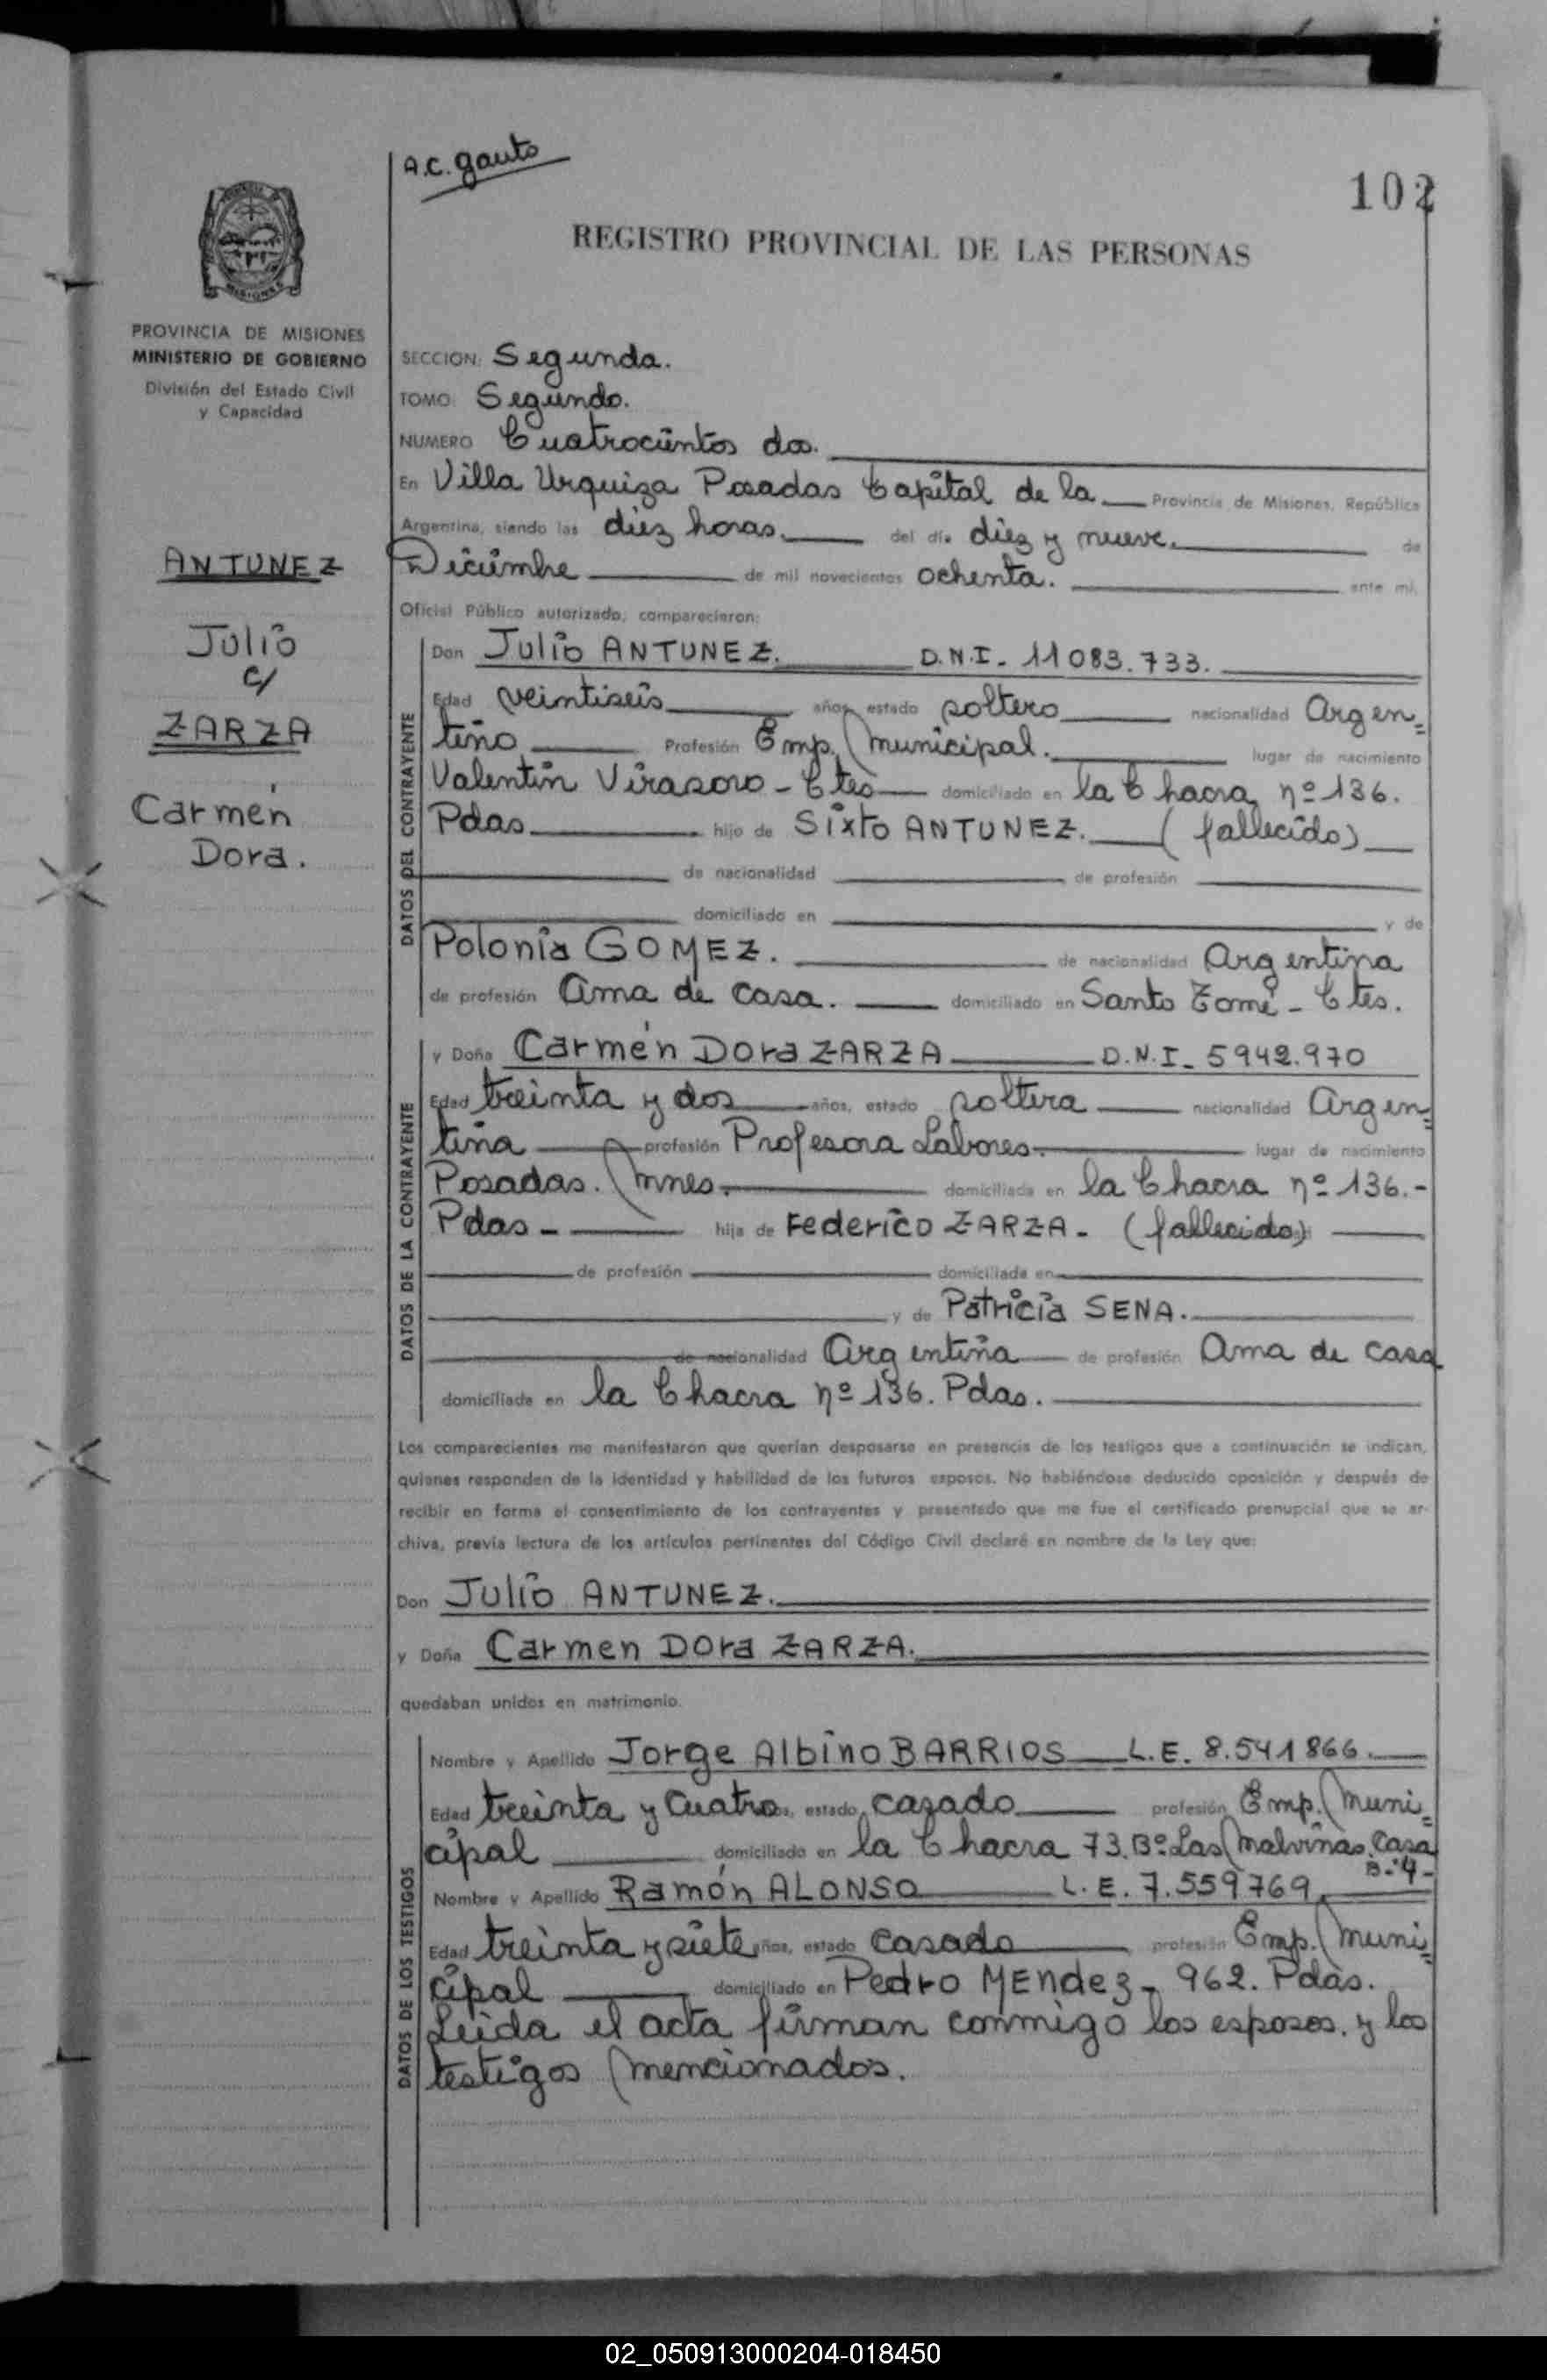 A.C. Gauto
102
REGISTRO PROVINCIAL DE LAS PERSONAS
MISIONES
PROVINCIA DE MISIONES
MINISTERIO DE GOBIERNO
División del Estado Civil
y Capacidad
ANTUNEZ
Julio
c/
ZARZA
Carmen
Dora.
SECCION: Segunda.
TOMO: Segundo.
NUMERO Cuatrocientos dos.
En Villa Urquiza Posadas Capital de la Provincia de Misiones, República
Argentina, siendo las diez horas. del día diez y nueve. de
Diciembre de mil novecientos ochenta. ante mí,
Oficial Público autorizado, comparecieron:
DATOS DEL CONTRAYENTE
Don Julio ANTUNEZ. D.N.I. 11083.733.
Edad veintiseis años, estado soltero nacionalidad Argen=
tino Profesión Emp. Municipal. lugar de nacimiento
Valentin Virasoro - Ctes domiciliado en la Chacra nº 136.
Pdas hijo de Sixto ANTUNEZ. (fallecido)
de nacionalidad de profesión
domiciliado en y de
Polonia GOMEZ. de nacionalidad Argentina
de profesión Ama de casa. domiciliado en Santo Tomé - Ctes.
DATOS DE LA CONTRAYENTE
y Doña Carmen Dora ZARZA D.N.I. 5942.970
Edad treinta y dos años, estado soltera nacionalidad Argen=
tina profesión Profesora Labores. lugar de nacimiento
Posadas. Mnes. domiciliada en la Chacra nº 136.-
Pdas - hija de Federico ZARZA - (fallecido)
de profesión domiciliada en
y de Patricia SENA.
de nacionalidad Argentina de profesión Ama de casa
domiciliada en la Chacra nº 136. Pdas.
Los comparecientes me manifestaron que querían desposarse en presencia de los testigos que a continuación se indican,
quienes responden de la identidad y habilidad de los futuros esposos. No habiéndose deducido oposición y después de
recibir en forma el consentimiento de los contrayentes y presentado que me fue el certificado prenupcial que se ar-
chiva, previa lectura de los artículos pertinentes del Código Civil declaré en nombre de la Ley que:
Don Julio ANTUNEZ.
y Doña Carmen Dora ZARZA.
quedaban unidos en matrimonio.
DATOS DE LOS TESTIGOS
Nombre y Apellido Jorge Albino BARRIOS L.E. 8.541866.
Edad treinta y cuatro años, estado casado profesión Emp. Muni=
cipal domiciliado en la Chacra 73. Bº Las Malvinas Casa
B-4-
Nombre y Apellido Ramón ALONSO L.E. 7.559769.
Edad treinta y siete años, estado casado profesión Emp. Muni=
cipal domiciliado en Pedro Mendez - 962. Pdas.
Leida el acta firman conmigo los esposos. y los
testigos mencionados.
02_050913000204-018450